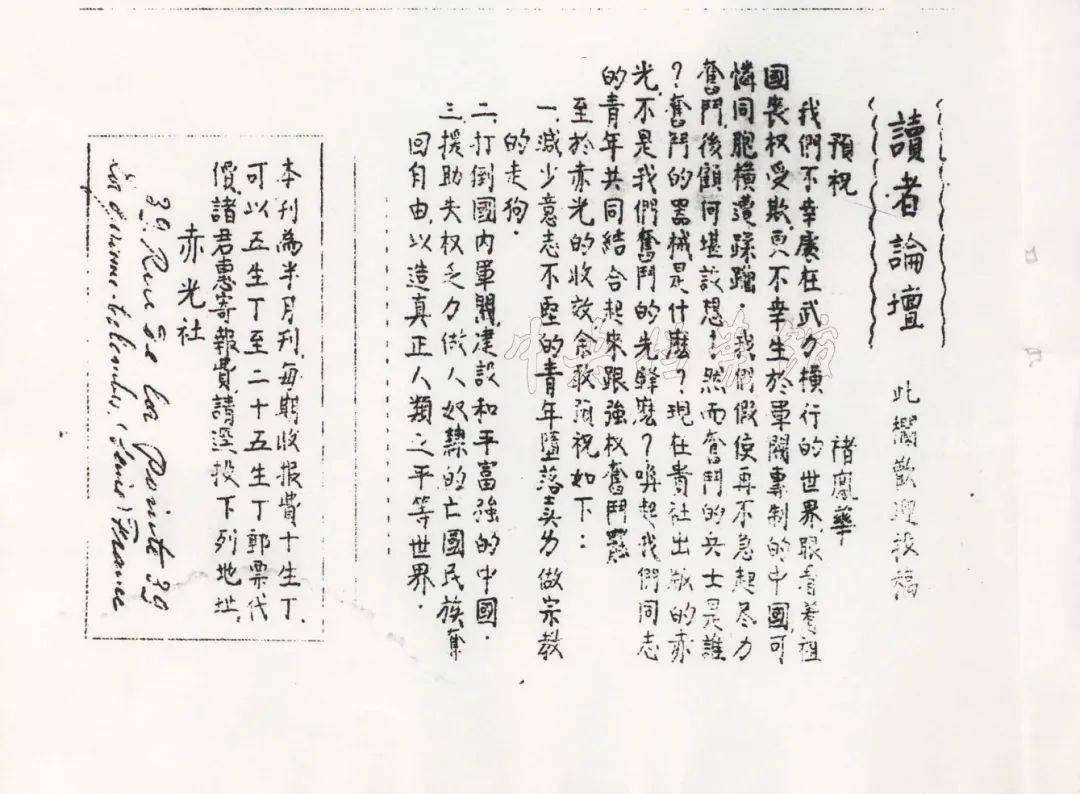 讀者論壇
此欄歡迎投稿
預祝
褚鳳華
我們不幸處在武力橫行的世界,眼看着祖
國喪权受欺,更不幸生於軍閥專制的中國,可
憐同胞橫遭蹂躪.我們假使再不急起尽力
奮鬥,後顧何堪設想!然而奮鬥的兵士是誰
?奮鬥的器械是什麽?現在貴社出版的赤
光,不是我們奮鬥的先鋒麽?喚起我們同志
的青年共同結合起來跟強权奮鬥罷
至於赤光的收效余敢預祝如下:
一,減少意志不堅的青年墮落卖力做宗教
的走狗.
二,打倒國内軍閥,建設和平富強的中國.
三,援助失权乏力做人奴隸的亡國民族奪
回自由,以造真正人類之平等世界.
本刊為半月刊,每期收报費十生丁,
可以五生丁至二十五生丁郵票代
價,諸君惠寄報費,請逕投下列地址,
赤光社
39 Rue de la Pointe 39
La Garenne-Colombes, (Paris) France
中央档案馆